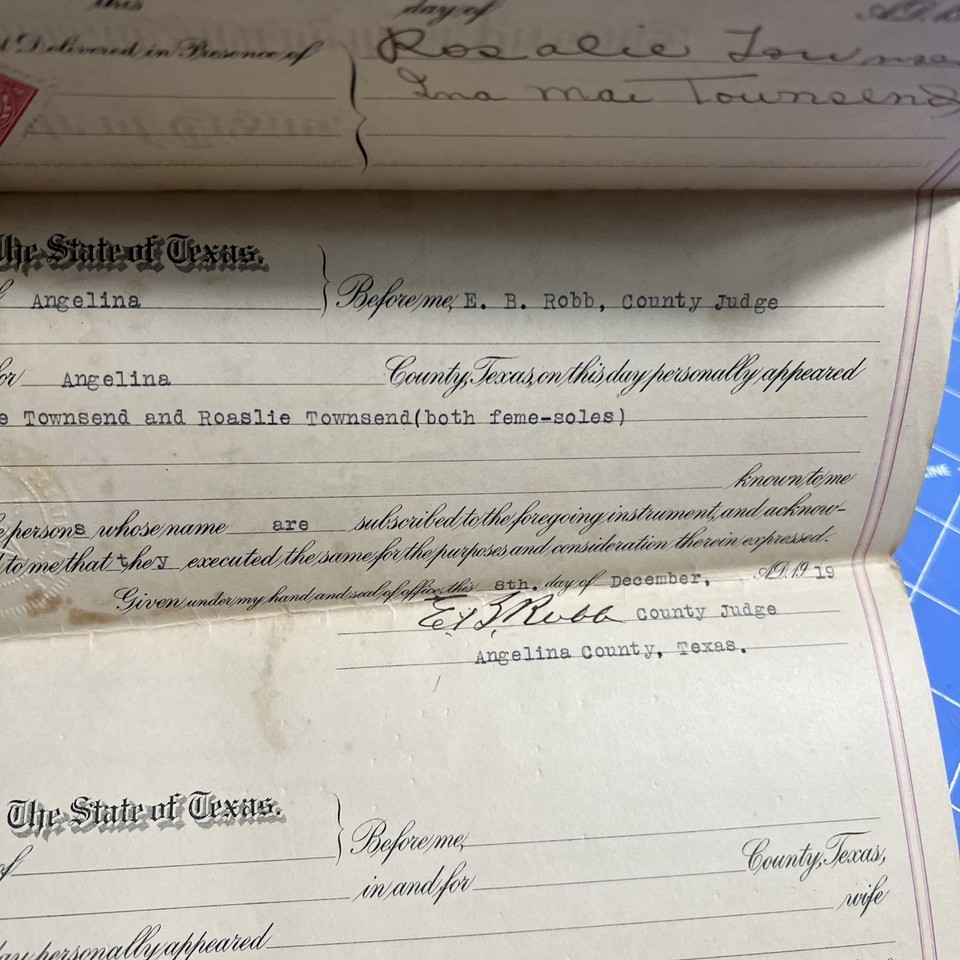 this day of A.D. 19
Delivered in Presence of Rosalie
Ina Mae Townsend
The State of Texas.
Angelina Before me, E. B. Robb, County Judge
for Angelina County, Texas, on this day personally appeared
e Townsend and Roaslie Townsend(both feme-soles)
known to me
persons whose name are subscribed to the foregoing instrument, and acknow-
to me that they executed the same for the purposes and consideration therein expressed.
Given under my hand and seal of office this 8th. day of December, A.D. 19 19
E. B. Robb County Judge
Angelina County, Texas.
The State of Texas.
of Before me,
County, Texas,
in and for
wife
day personally appeared